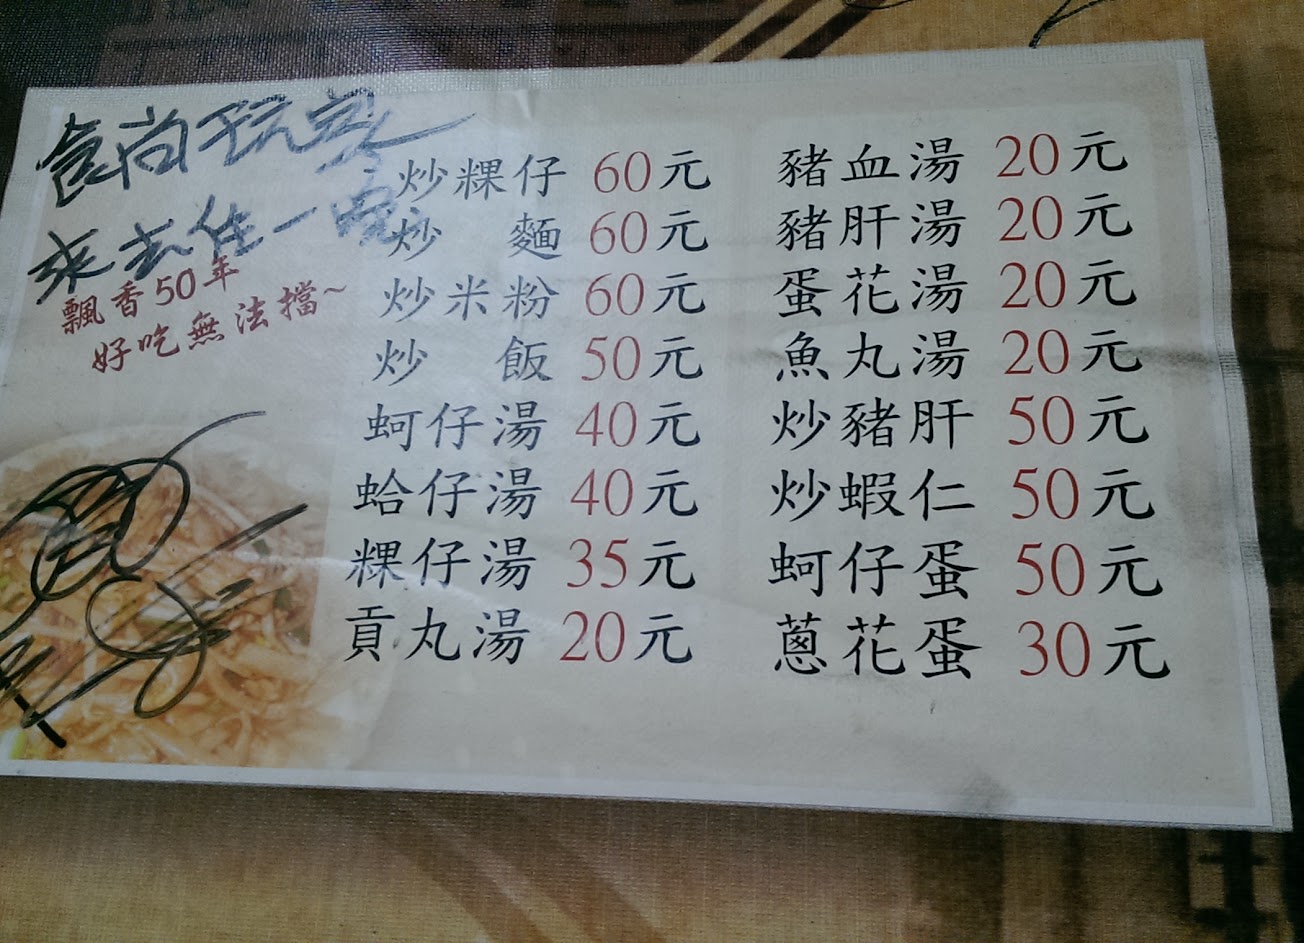 食尚玩家
來去住一晚
飄香50年
好吃無法擋~
炒粿仔 60元
炒 麵 60元
炒米粉 60元
炒 飯 50元
蚵仔湯 40元
蛤仔湯 40元
粿仔湯 35元
貢丸湯 20元
豬血湯 20元
豬肝湯 20元
蛋花湯 20元
魚丸湯 20元
炒豬肝 50元
炒蝦仁 50元
蚵仔蛋 50元
蔥花蛋 30元